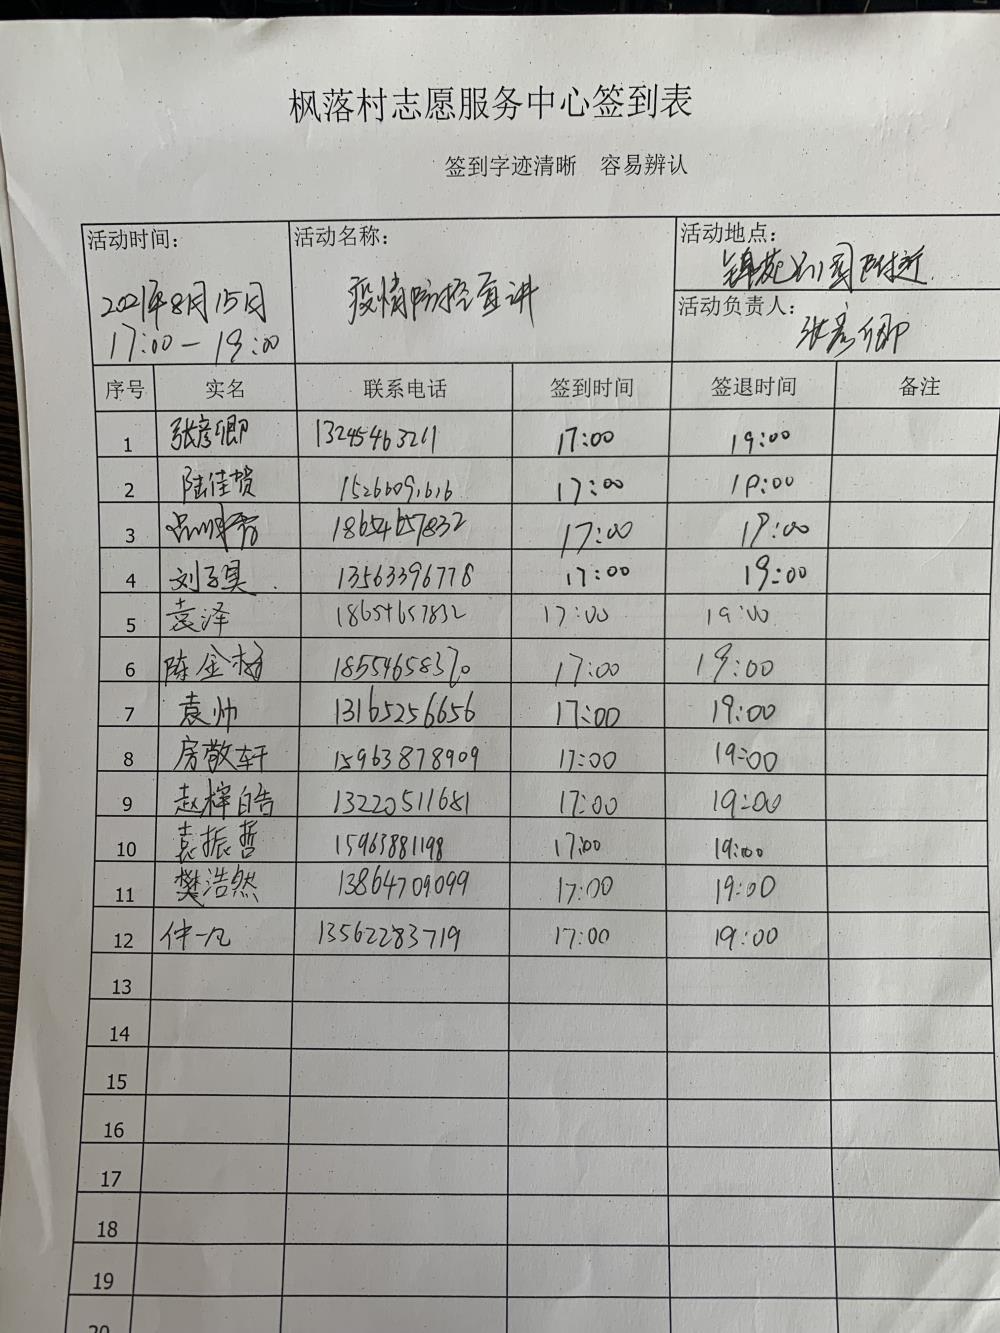 枫落村志愿服务中心签到表
签到字迹清晰 容易辨认
活动时间: 活动名称: 活动地点:
2021年8月15日 疫情防控宣讲 锦苑小公园附近
17:00—19:00 活动负责人: 张彦卿
序号 实名 联系电话 签到时间 签退时间 备注
1 张彦卿 13245463211 17:00 19:00
2 陆佳贺 17:00 19:00
3 18654657832 17:00 19:00
4 刘子昊 13563396778 17:00 19:00
5 袁泽 18654657832 17:00 19:00
6 陈金 18554658370 17:00 19:00
7 袁帅 13165256656 17:00 19:00
8 房敬轩 15963878909 17:00 19:00
9 赵梓皓 13220511681 17:00 19:00
10 袁振哲 15963881198 17:00 19:00
11 樊浩然 13864709099 17:00 19:00
12 仲一凡 13562283719 17:00 19:00
13
14
15
16
17
18
19
20